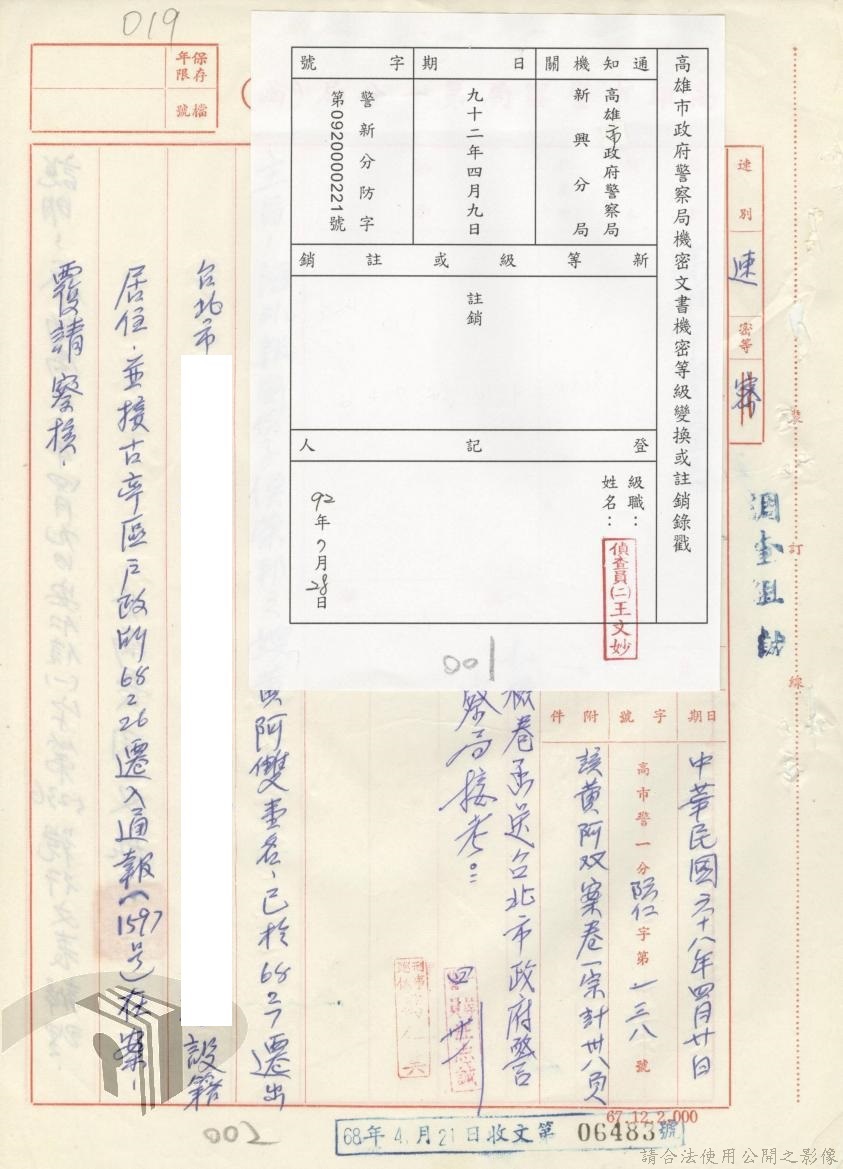 019
保存年限
檔號
高雄市政府警察局機密文書機密等級變換或註銷錄戳
通知機關
高雄市政府警察局
新興分局
日期
九十二年四月九日
字號
警新分防字
第0920000221號
新等級或註銷
註銷
登記人
級職：
姓名：
偵查員(二)王文妙
92年7月28日
001
速別
速
密等
密
裝
訂
線
日期
中華民國六十八年四月廿日
字號
高市警一分防仁字第一三八號
附件
該黃阿双案卷一宗計卅八頁
卷丞送台北市政府警
察局接考。
黃阿雙壹名，已於68 2 7遷出
台北市
設籍
居住，並接古亭區戶政所68 2 26遷入通報(1597号)在案，
覆請察核，
67.12.2.000
68年4月21日收文第06483號
002
請合法使用公開之影像